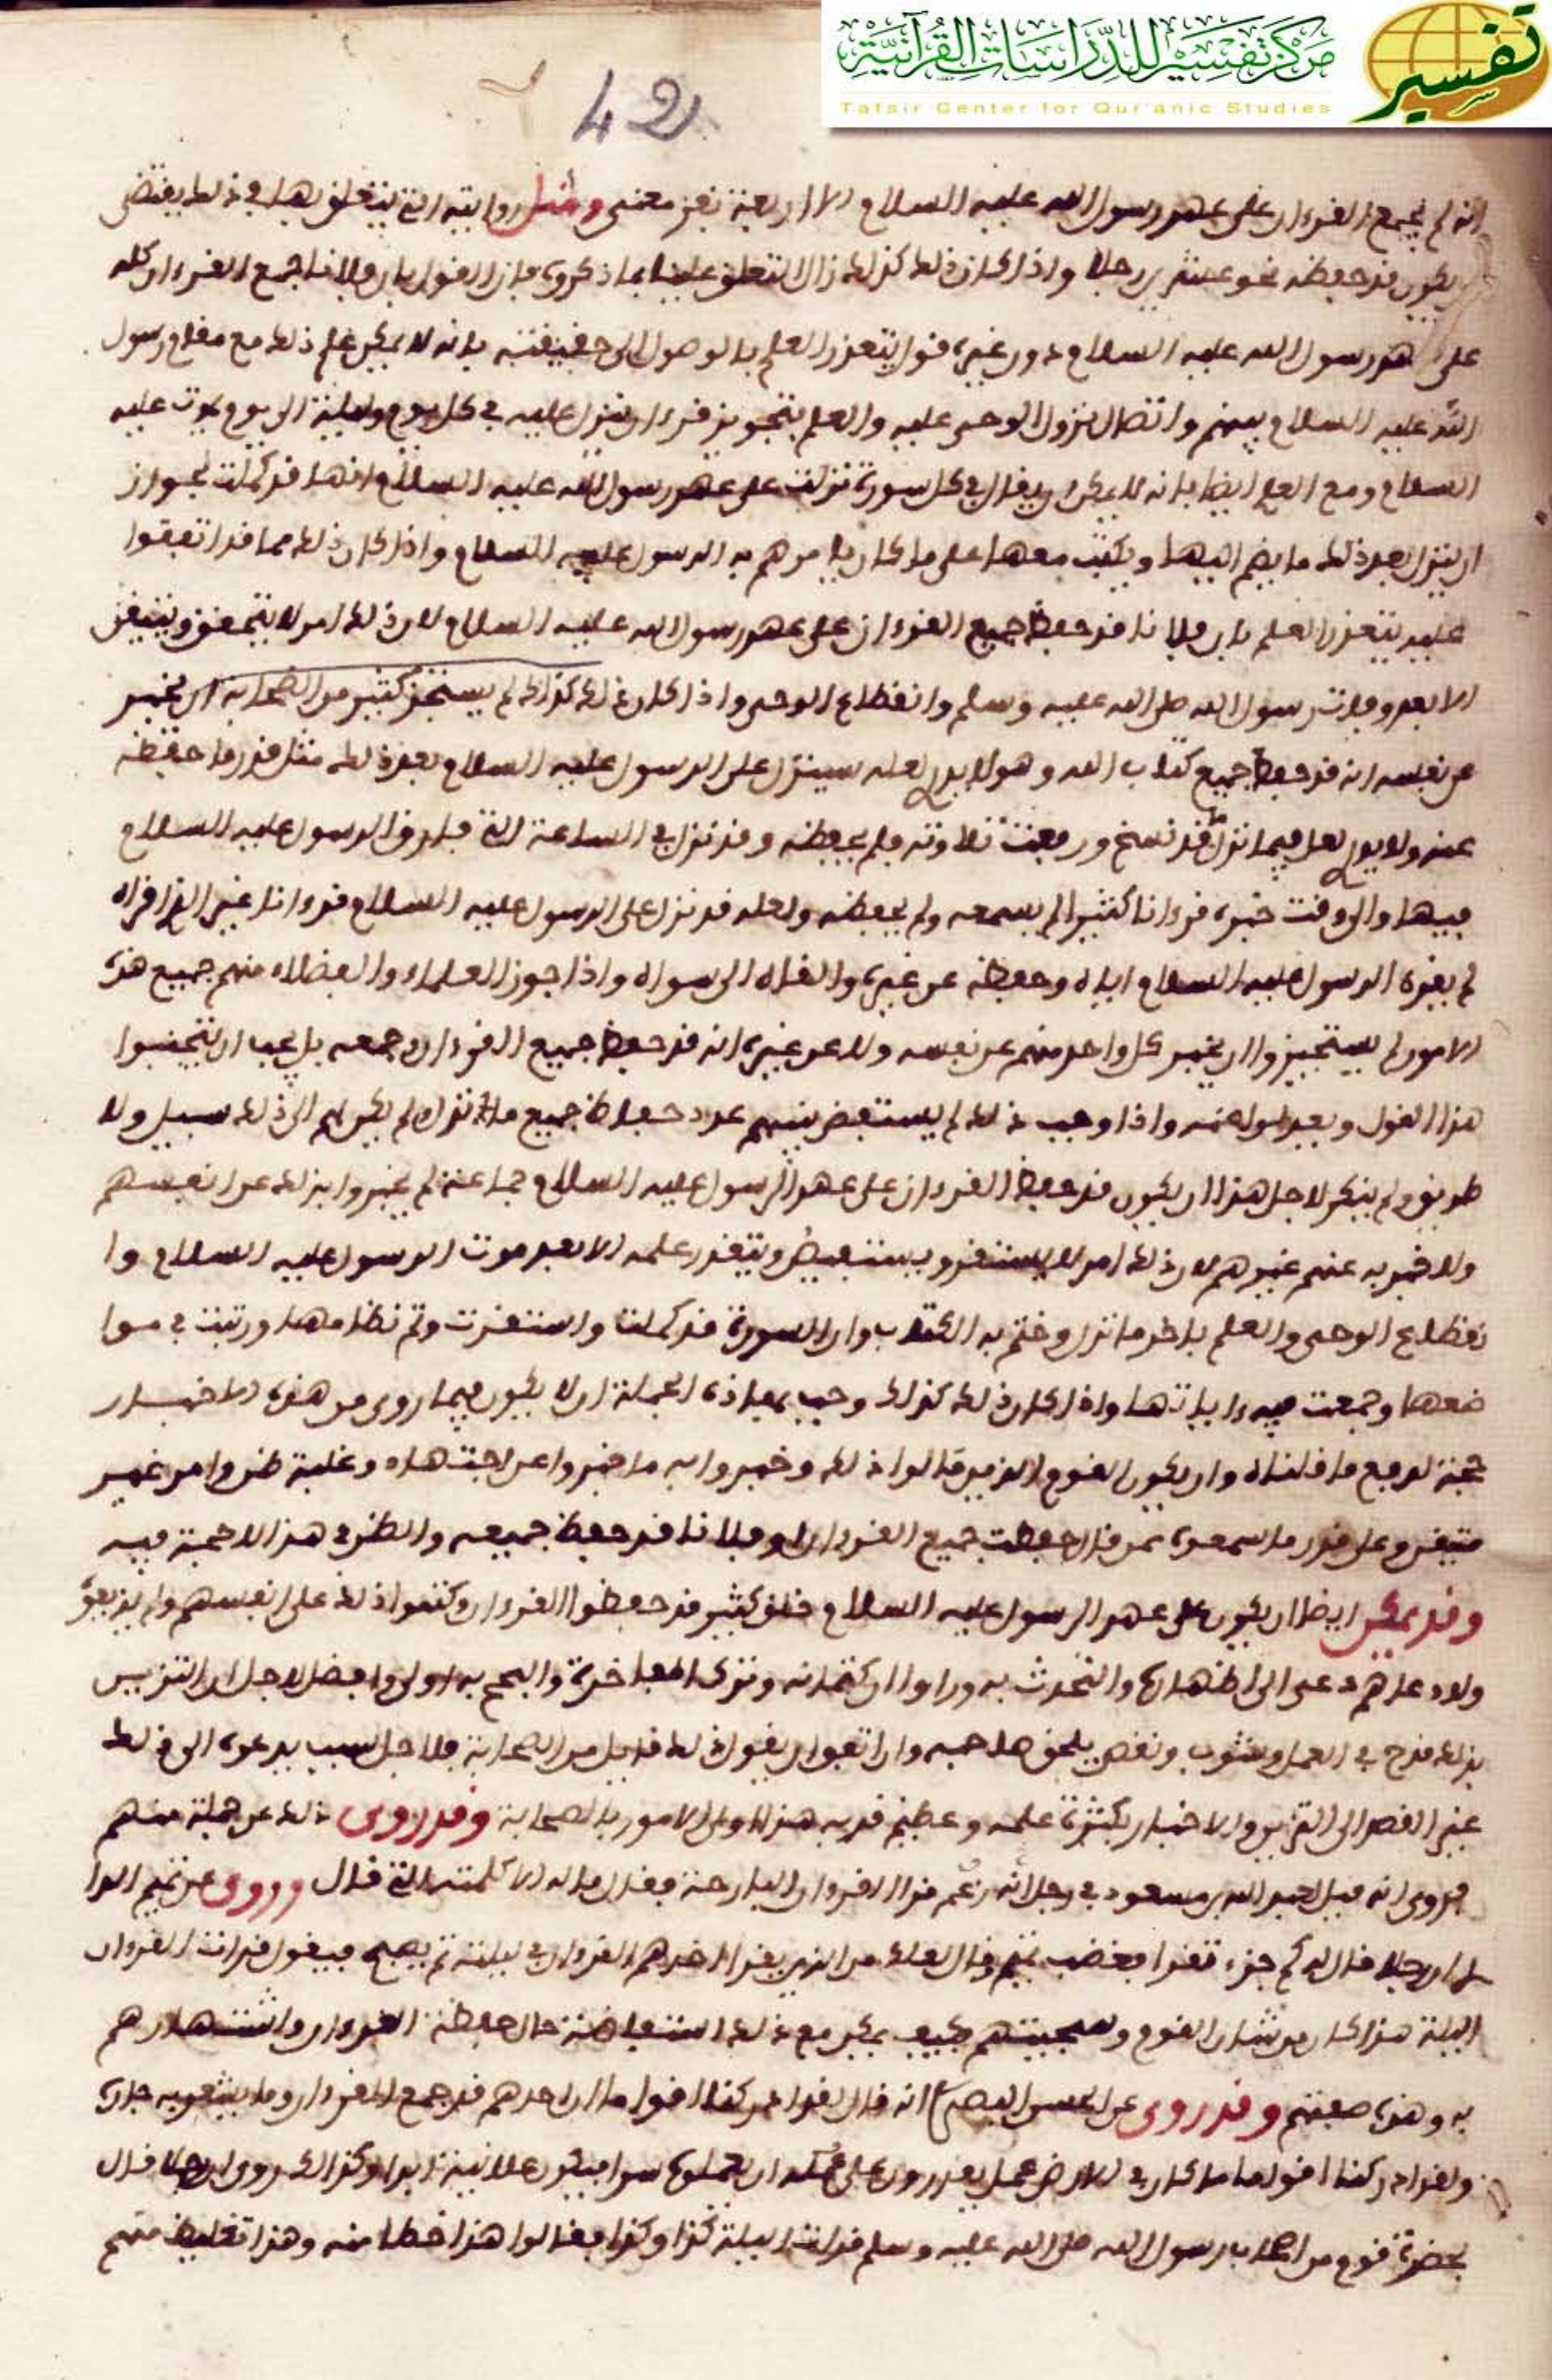 مركز تفسير للدراسات القرآنية
Tafsir Center for Qur'anic Studies
تفسير
42
انه لم يجمع القرءان على عهد رسول الله عليه السلام الا اربعة نفر معنى ومثل روايته التي يتعلق بها في ذلك يقتضي
ان يكون قد حفظه نحو عشرين رجلا واذا كان ذلك كذلك زال التعلق علينا بما ذكروه فان القول بان فلانا جمع القرءان كله
على عهد رسول الله عليه السلام دون غيره قول يتعذر العلم بالوصول الى حقيقته بانه لا يمكن علم ذلك مع مقام رسول
الله عليه السلام بينهم واتصال نزول الوحي عليه والعلم بتجويز قرءان ينزل عليه في كل يوم وليلة الى يوم يموت عليه
السلام ومع العلم ايضا بانه لا يمكن ان يقال في كل سورة نزلت على عهد رسول الله عليه السلام انها قد كملت لجواز
ان ينزل بعد ذلك ما يضم اليها ويكتب معها على ما كان يامرهم به الرسول عليه السلام واذا كان ذلك مما قد اتفقوا
عليه يتعذر العلم بان فلانا قد حفظ جميع القرءان على عهد رسول الله عليه السلام لان ذلك امر لا يتحقق ويتيقن
الا بعد وفات رسول الله صلى الله عليه وسلم وانقطاع الوحي واذا كان ذلك كذلك لم يستجز كثير من الصحابة ان يخبر
عن نفسه انه قد حفظ جميع كتاب الله وهو لا يدري لعله سينزل على الرسول عليه السلام بعد ذلك مثل قدر ما حفظه
عنه ولا يدري لعل فيما نزل قد نسخ ورفعت تلاوته ولم يحفظه وقد نزل في الساعة التي فارق الرسول عليه السلام
فيها والى وقت خبره قرءانا كثيرا لم يسمعه ولم يحفظه ولعله قد نزل على الرسول عليه السلام قرءانا غير الذي اقراه
لم يقره الرسول عليه السلام اياه وحفظه عن غيره والقاه الى سواه واذا جوز العلماء والفضلاء منهم جميع هذه
الامور لم يستجيزوا ان يخبر كل واحد منهم عن نفسه ولا عن غيره انه قد حفظ جميع القرءان وجمعه بل يجب ان يتجنبوا
هذا القول ويعدلوا عنه واذا وجب ذلك لم يستفض بينهم عدد حفاظ جميع ما نزل ولم يكن لهم الى ذلك سبيل ولا
طريق ولم ينكر لاجل هذا ان يكون قد حفظ القرءان على عهد الرسول عليه السلام جماعة لم يخبروا بذلك عن انفسهم
ولا خبر به عنهم غيرهم لان ذلك امر لا يستقر ويستفيض ويتقدر علمه الا بعد موت الرسول عليه السلام وا
نقطاع الوحي والعلم باخر ما نزل وختم به الكتاب وان السورة قد كملت واستقرت وتم نظامها ورتبت في موا
ضعها وجمعت فيه ءاياتها واذا كان ذلك كذلك وجب بهاذه الجملة ان لا يكون فيما روي من هذه الاخبار
حجة لدفع ما قلناه وان يكون القوم الذين قالوا ذلك وخبروا به ما خبروا عن اجتهاد وغلبة ظن وامر غير
متيقن وعلى قدر ما سمعوه ممن قال حفظت جميع القرءان او فلانا قد حفظ جميعه والظن في هذا لا حجة فيه
وقد يمكن ايضا ان يكون على عهد الرسول عليه السلام خلق كثير قد حفظوا القرءان وكتموا ذلك على انفسهم ولم يذيعوه
ولا دعاهم داعى الى اظهاره والتحدث به وراوا ان كتمانه وترك المفاخرة والبجح به اولى وافضل لاجل ان التزين
بذلك قدح في العمل وشوب ونقص يلحق صاحبه وان اتفق ان يقول ذلك قايل من الصحابة فلاجل سبب يدعوه الى ذلك
غير القصد الى التزين والاخبار بكثرة علمه وعظيم قدره هذا اولى الامور بالصحابة وقد روى ذلك عن جلة منهم
فروي انه قيل لعبد الله بن مسعود في رجل انه زعم قرا القرءان البارحة فقال ما له الا كلمته التي قال وروى عن تميم الدا
ري ان رجلا قال له كم جزء تقرا فغضب تميم وقال لعلك من الذين يقرا احدهم القرءان في ليلة ثم يصبح فيقول قرات القرءان
الليلة هذا كان من شان القوم وسجيتهم فكيف يمكن مع ذلك استفاضة حال حفظة القرءان واشتهارهم
به وهذه صفتهم وقد روى عن الحسن البصري انه قال لقد ادركنا اقواما ان احدهم قد جمع القرءان وما يشعر به جاره
ولقد ادركنا اقواما ما كان في الارض عمل يقدرون على ان يعملوه سرا فيكون علانية ابدا وكذلك روي ان رجلا قال
بحضرة قوم من اصحاب رسول الله صلى الله عليه وسلم قرات الليلة كذا وكذا فقالوا هذا حظك منه وهذا تغليظ منهم